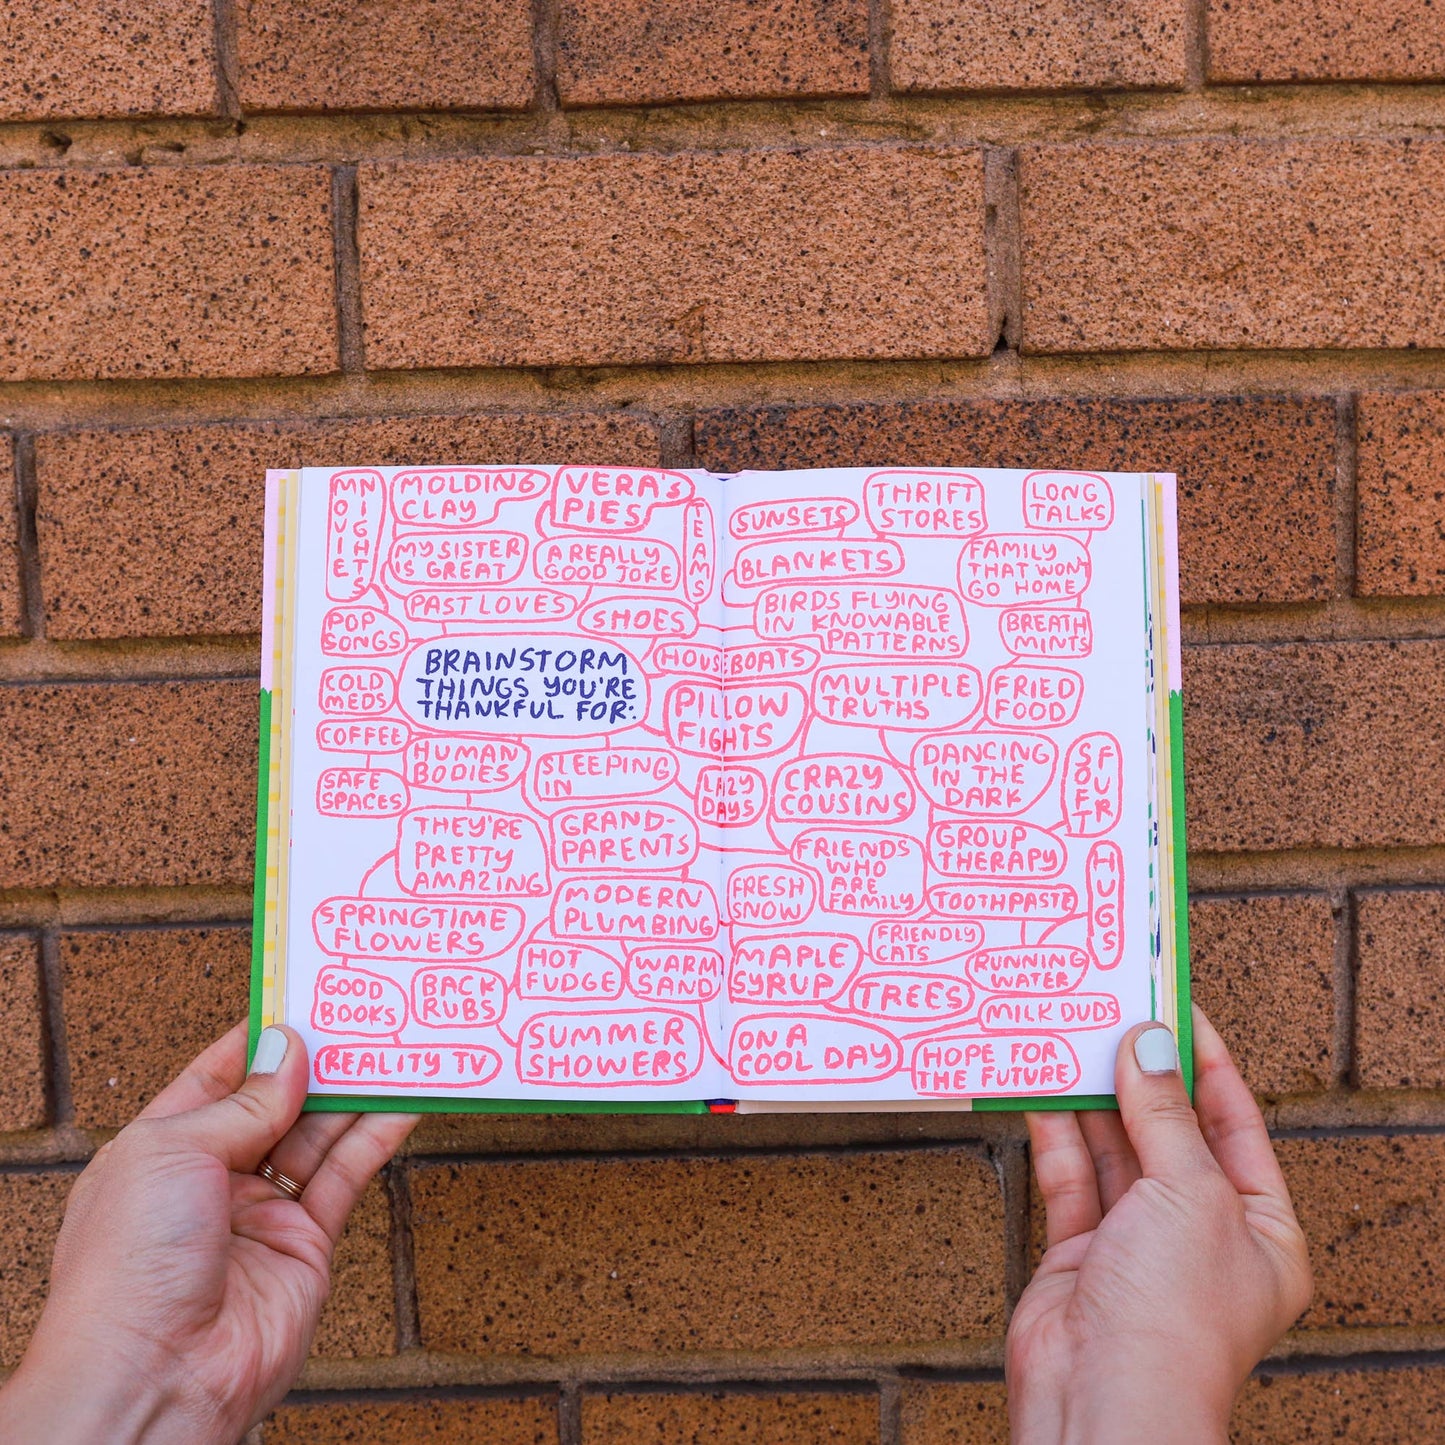 MOVIE
NIGHTS
MOLDING
CLAY
VERA'S
PIES
TEAMS
MY SISTER
IS GREAT
A REALLY
GOOD JOKE
PAST LOVES
SHOES
POP
SONGS
BRAINSTORM
THINGS YOU'RE
THANKFUL FOR:
HOUSEBOATS
COLD
MEDS
PILLOW
FIGHTS
COFFEE
HUMAN
BODIES
SLEEPING
IN
LAZY
DAYS
SAFE
SPACES
THEY'RE
PRETTY
AMAZING
GRAND-
PARENTS
MODERN
PLUMBING
SPRINGTIME
FLOWERS
HOT
FUDGE
WARM
SAND
GOOD
BOOKS
BACK
RUBS
SUMMER
SHOWERS
REALITY TV
SUNSETS
THRIFT
STORES
LONG
TALKS
BLANKETS
FAMILY
THAT WON'T
GO HOME
BIRDS FLYING
IN KNOWABLE
PATTERNS
BREATH
MINTS
MULTIPLE
TRUTHS
FRIED
FOOD
CRAZY
COUSINS
DANCING
IN THE
DARK
SOFT
FUR
FRIENDS
WHO
ARE
FAMILY
GROUP
THERAPY
HUGS
FRESH
SNOW
TOOTHPASTE
FRIENDLY
CATS
MAPLE
SYRUP
RUNNING
WATER
TREES
MILK DUDS
ON A
COOL DAY
HOPE FOR
THE FUTURE